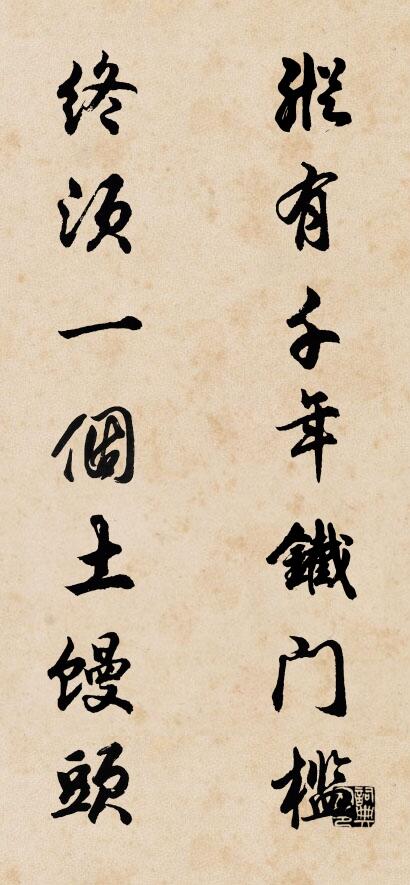 縱有千年鐵门檻
終須一個土饅頭